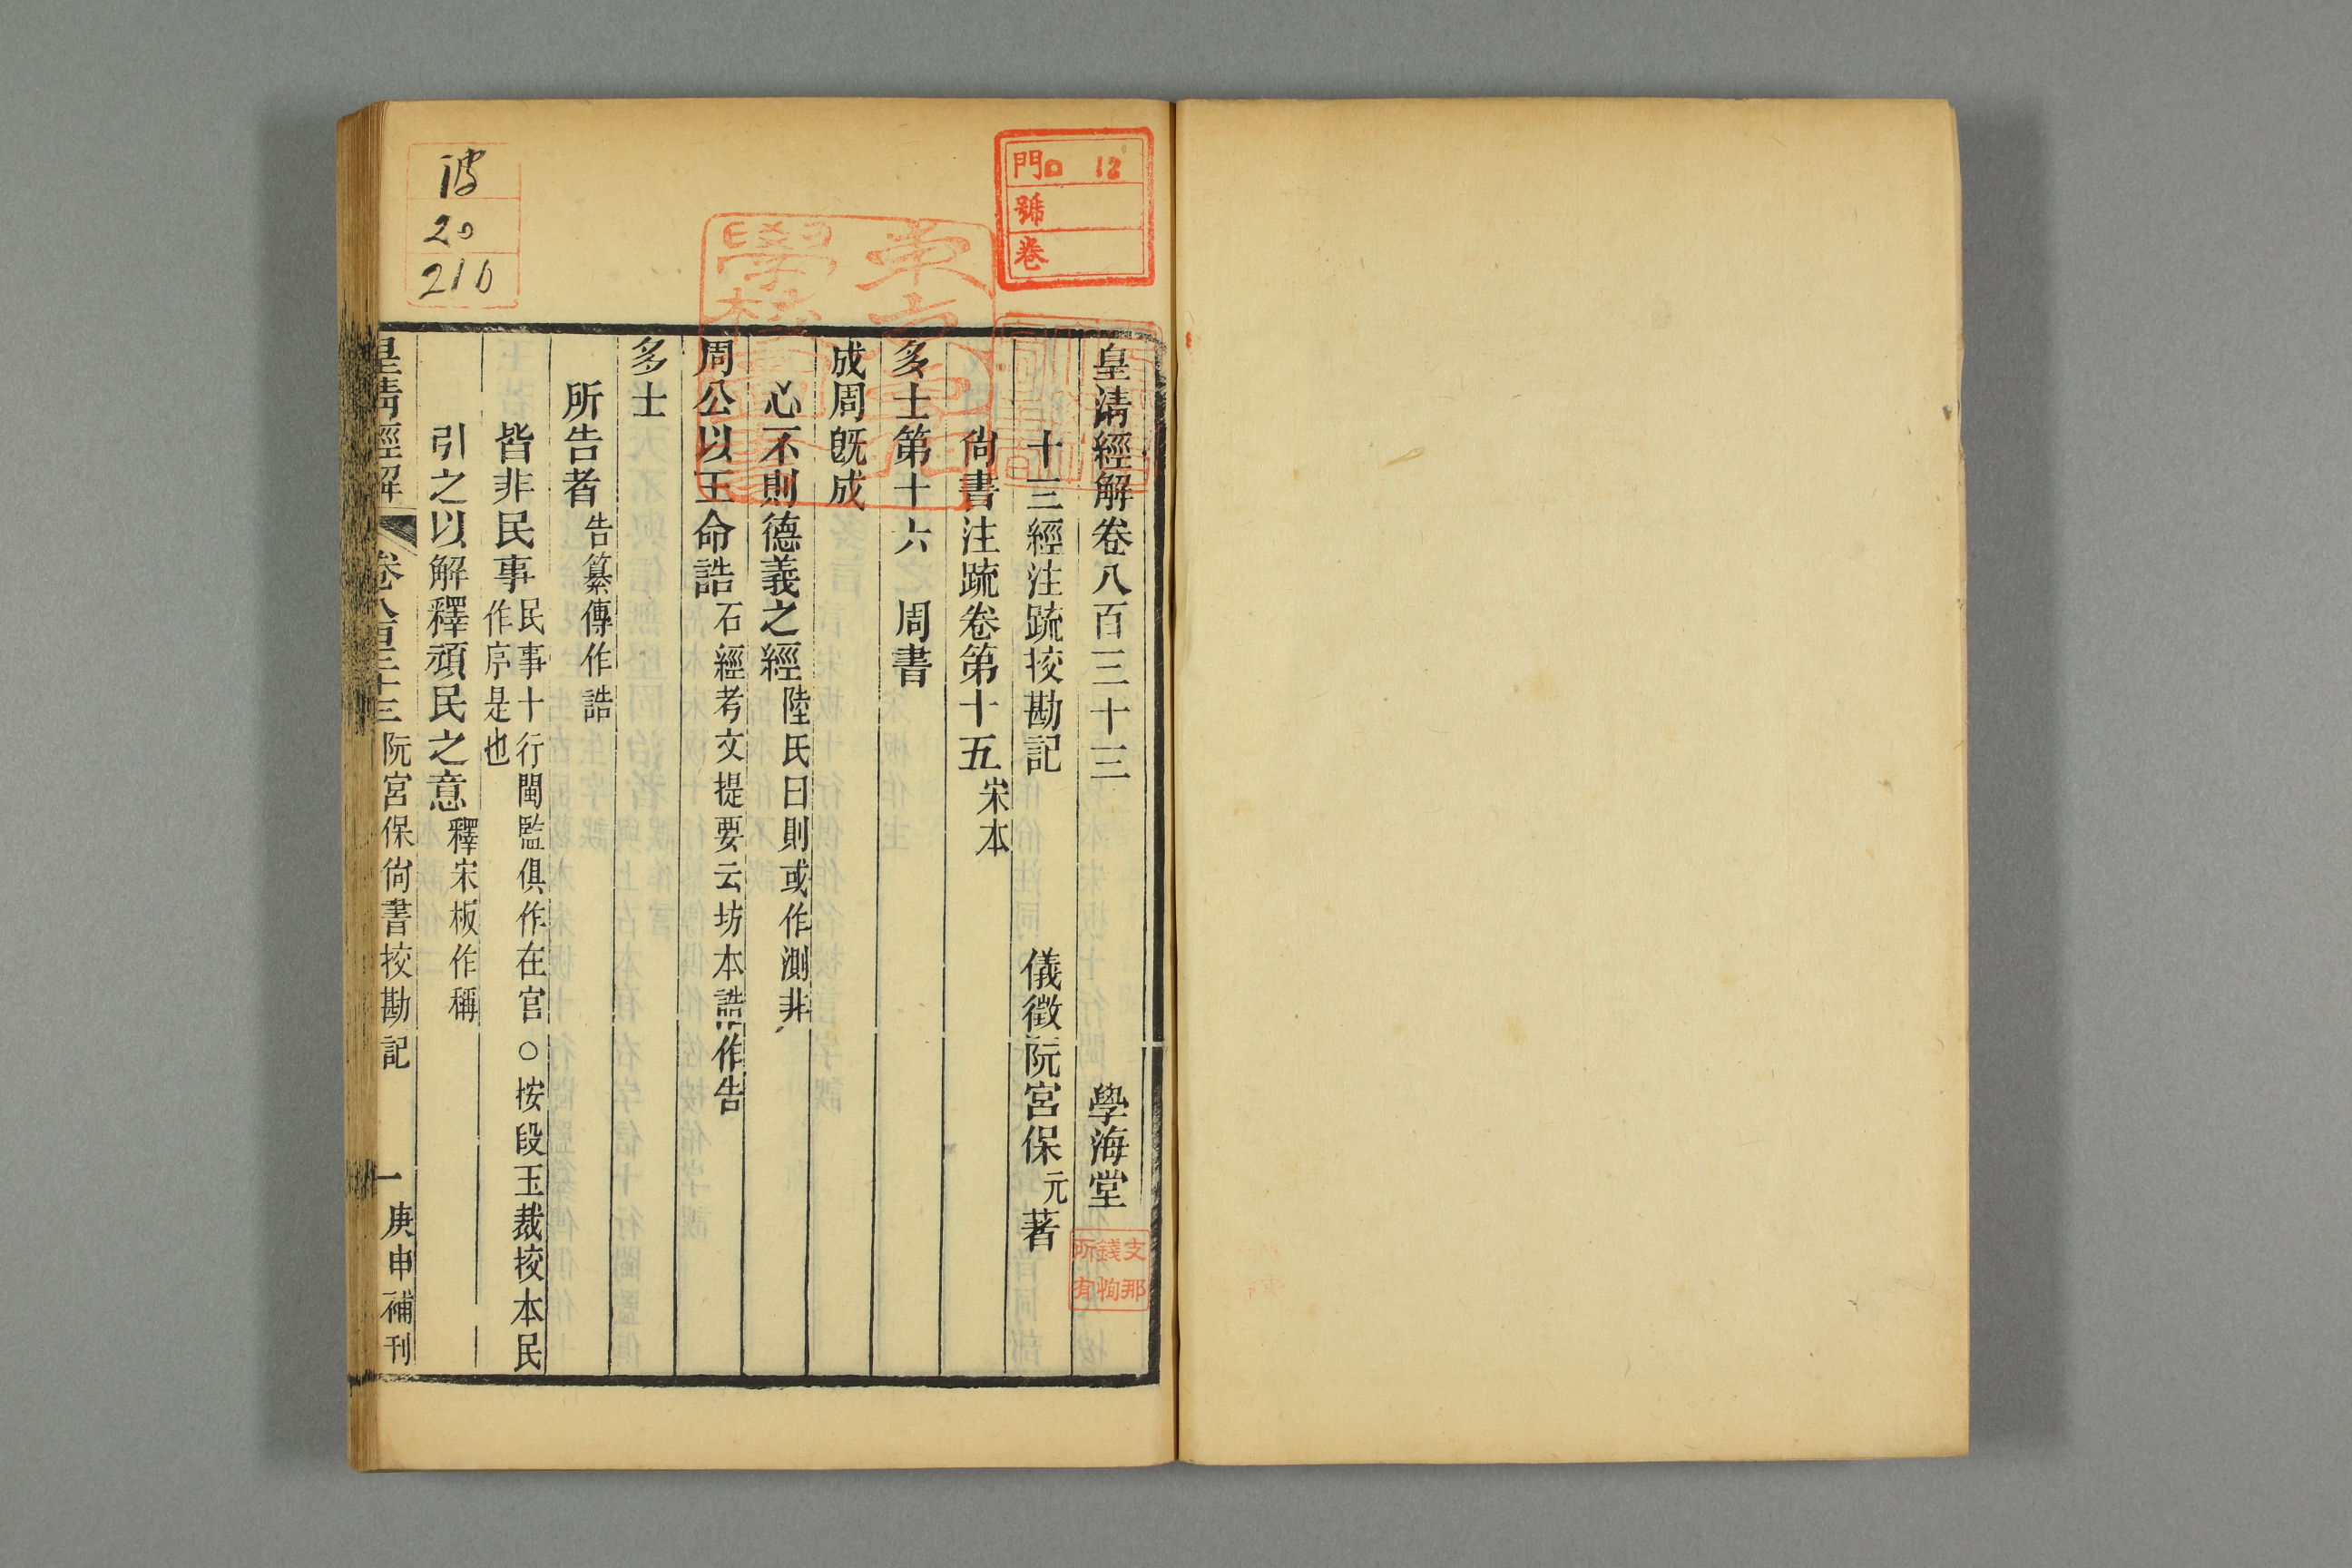 皇清經解卷八百三十三　學海堂
十三經注疏挍勘記　儀徵阮宮保元著
尙書注疏卷第十五宋本
多士第十六　周書
成周旣成
心不則德義之經陸氏曰則或作測非
周公以王命誥石經考文提要云坊本誥作告
多士
所告者告纂傳作誥
皆非民事民事十行閩監俱作在官○按段玉裁挍本民
作序是也
引之以解釋頑民之意釋宋板作稱
皇清經解　卷八百三十三　阮宮保尙書挍勘記　一　庚申補刊
門口 12
號
卷
支那
錢恂
所有
20
210